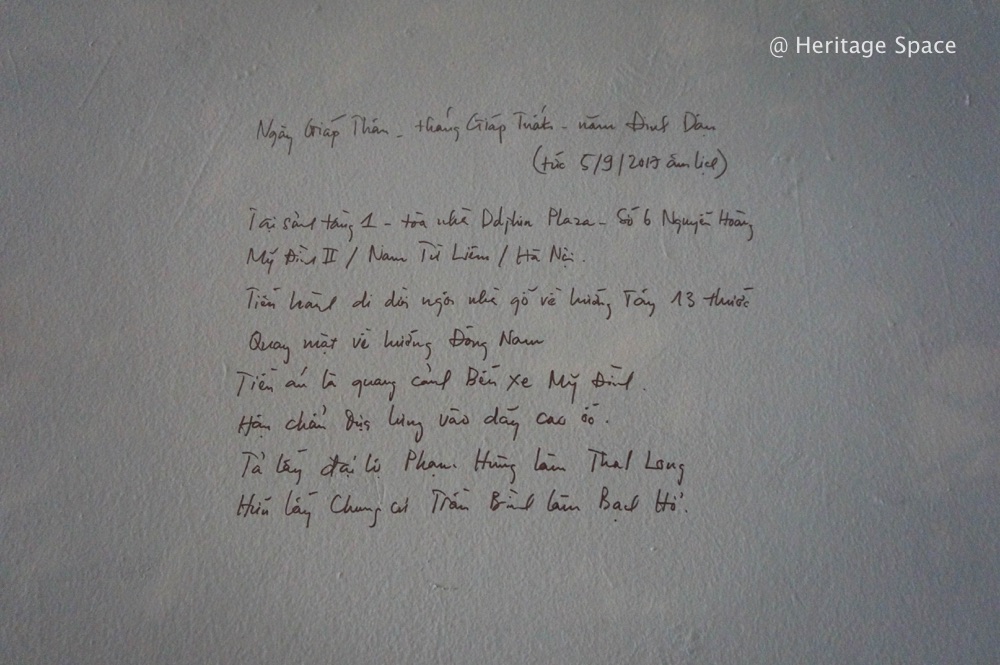 @ Heritage Space
Ngày Giáp Thân - tháng Giáp Tuất - năm Đinh Dậu
(tức 5/9/2017 âm lịch)
Tại sảnh tầng 1 - tòa nhà Dolphin Plaza - Số 6 Nguyễn Hoàng
Mỹ Đình II / Nam Từ Liêm / Hà Nội.
Tiến hành di dời ngôi nhà gỗ về hướng Tây 13 thước
Quay mặt về hướng Đông Nam
Tiền án là quang cảnh Bến xe Mỹ Đình.
Hậu chẩm dựa lưng vào dãy cao ốc.
Tả lấy đại lộ Phạm Hùng làm Thanh Long
Hữu lấy Chung cư Trần Bình làm Bạch Hổ.